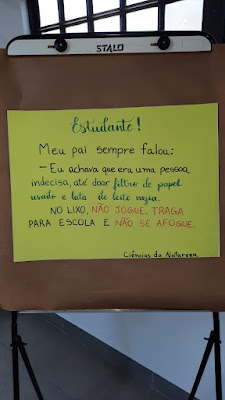 STALO
Estudante!
Meu pai sempre falou:
- Eu achava que era uma pessoa
indecisa, até doar filtro de papel
usado e lata de leite vazia.
NO LIXO, NÃO JOGUE. TRAGA
PARA ESCOLA E NÃO SE AFOGUE.
Ciências da Natureza